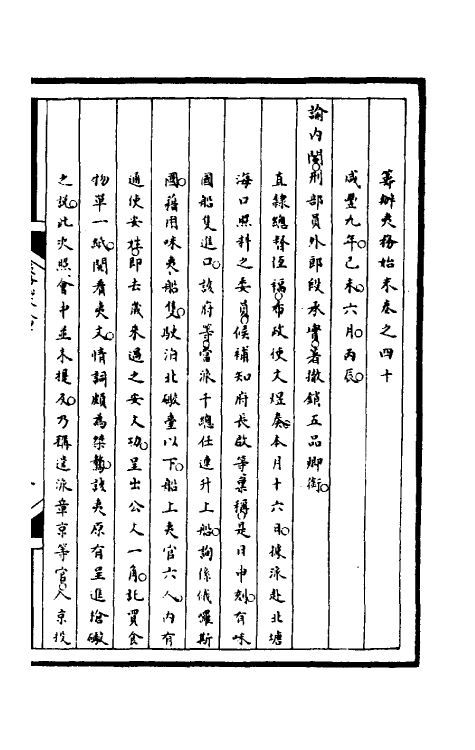 籌辦夷務始末卷之四十
咸豐九年己未六月丙辰
諭內閣刑部員外郎段承實著撤銷五品卿銜
直隸總督恆福布政使文煜奏本月十六日據派赴北塘
海口照料之委員候補知府長啟等稟稱是日申刻有咪
國船隻進口該府等當派千總任連升上船詢係俄羅斯
國藉用咪夷船隻駛泊北礮臺以下船上夷官六人內有
通使安姓即去歲來過之安文公呈出公文一角託買食
物草一紙閱看夷文情詞頗為桀驁該夷原有呈進槍礮
之說此次照會中並未提及乃稱遣派章京等官人京投